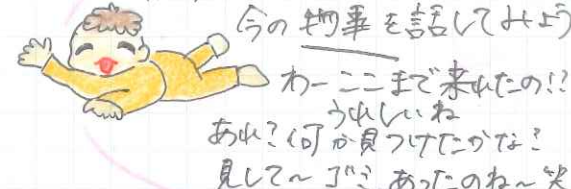 今の物事を話してみよう
わーここまで来れたの!?
うれしいね
あれ?何か見つけたかな?
見して〜ゴミあったのね〜笑